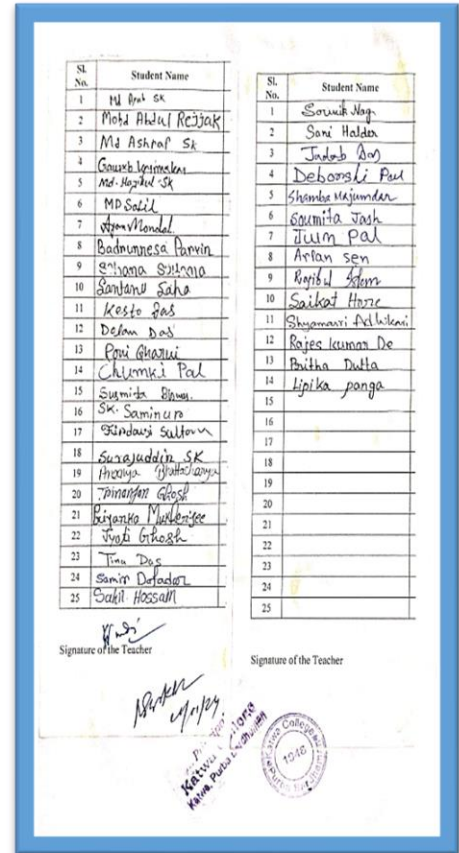 Sl. No. Student Name
1 Md Arab SK
2 Mohd Abdul Rejjak
3 Md Ashraf Sk
4 Gourab
5 Md. Hazibul Sk
6 MD Sakil
7 Ayan Mondal.
8 Badnunnesa Parvin
9 Suhana Sultana
10 Santanu Saha
11 Kesto Das
12 Delan Das
13 Poni Gharui
14 Chumki Pal
15 Susmita Biswas.
16 SK. Saminur
17 Firdausi Sultana
18 Surajuddin SK
19 Ananya Bhattacharya
20 Ghosh
21 Priyanka Mukherjee
22 Jyoti Ghosh
23 Tina Das
24 Samir Dafadar
25 Sakil Hossain
Signature of the Teacher
Sl. No. Student Name
1 Souvik Nag
2 Sani Halder
3 Jadab Das
4 Deborshi Paul
5 Shamba Majumdar
6 Soumita Dash
7 Jum Pal
8 Arian Sen
9 Islam
10 Saikat Hazre
11 Adhikari
12 Rajes kumar De
13 Britha Dutta
14 Lipika panga
15
16
17
18
19
20
21
22
23
24
25
Signature of the Teacher
Principal
Katwa College
Katwa, Purba Bardhaman
Katwa College
1948
Purba Bardhaman